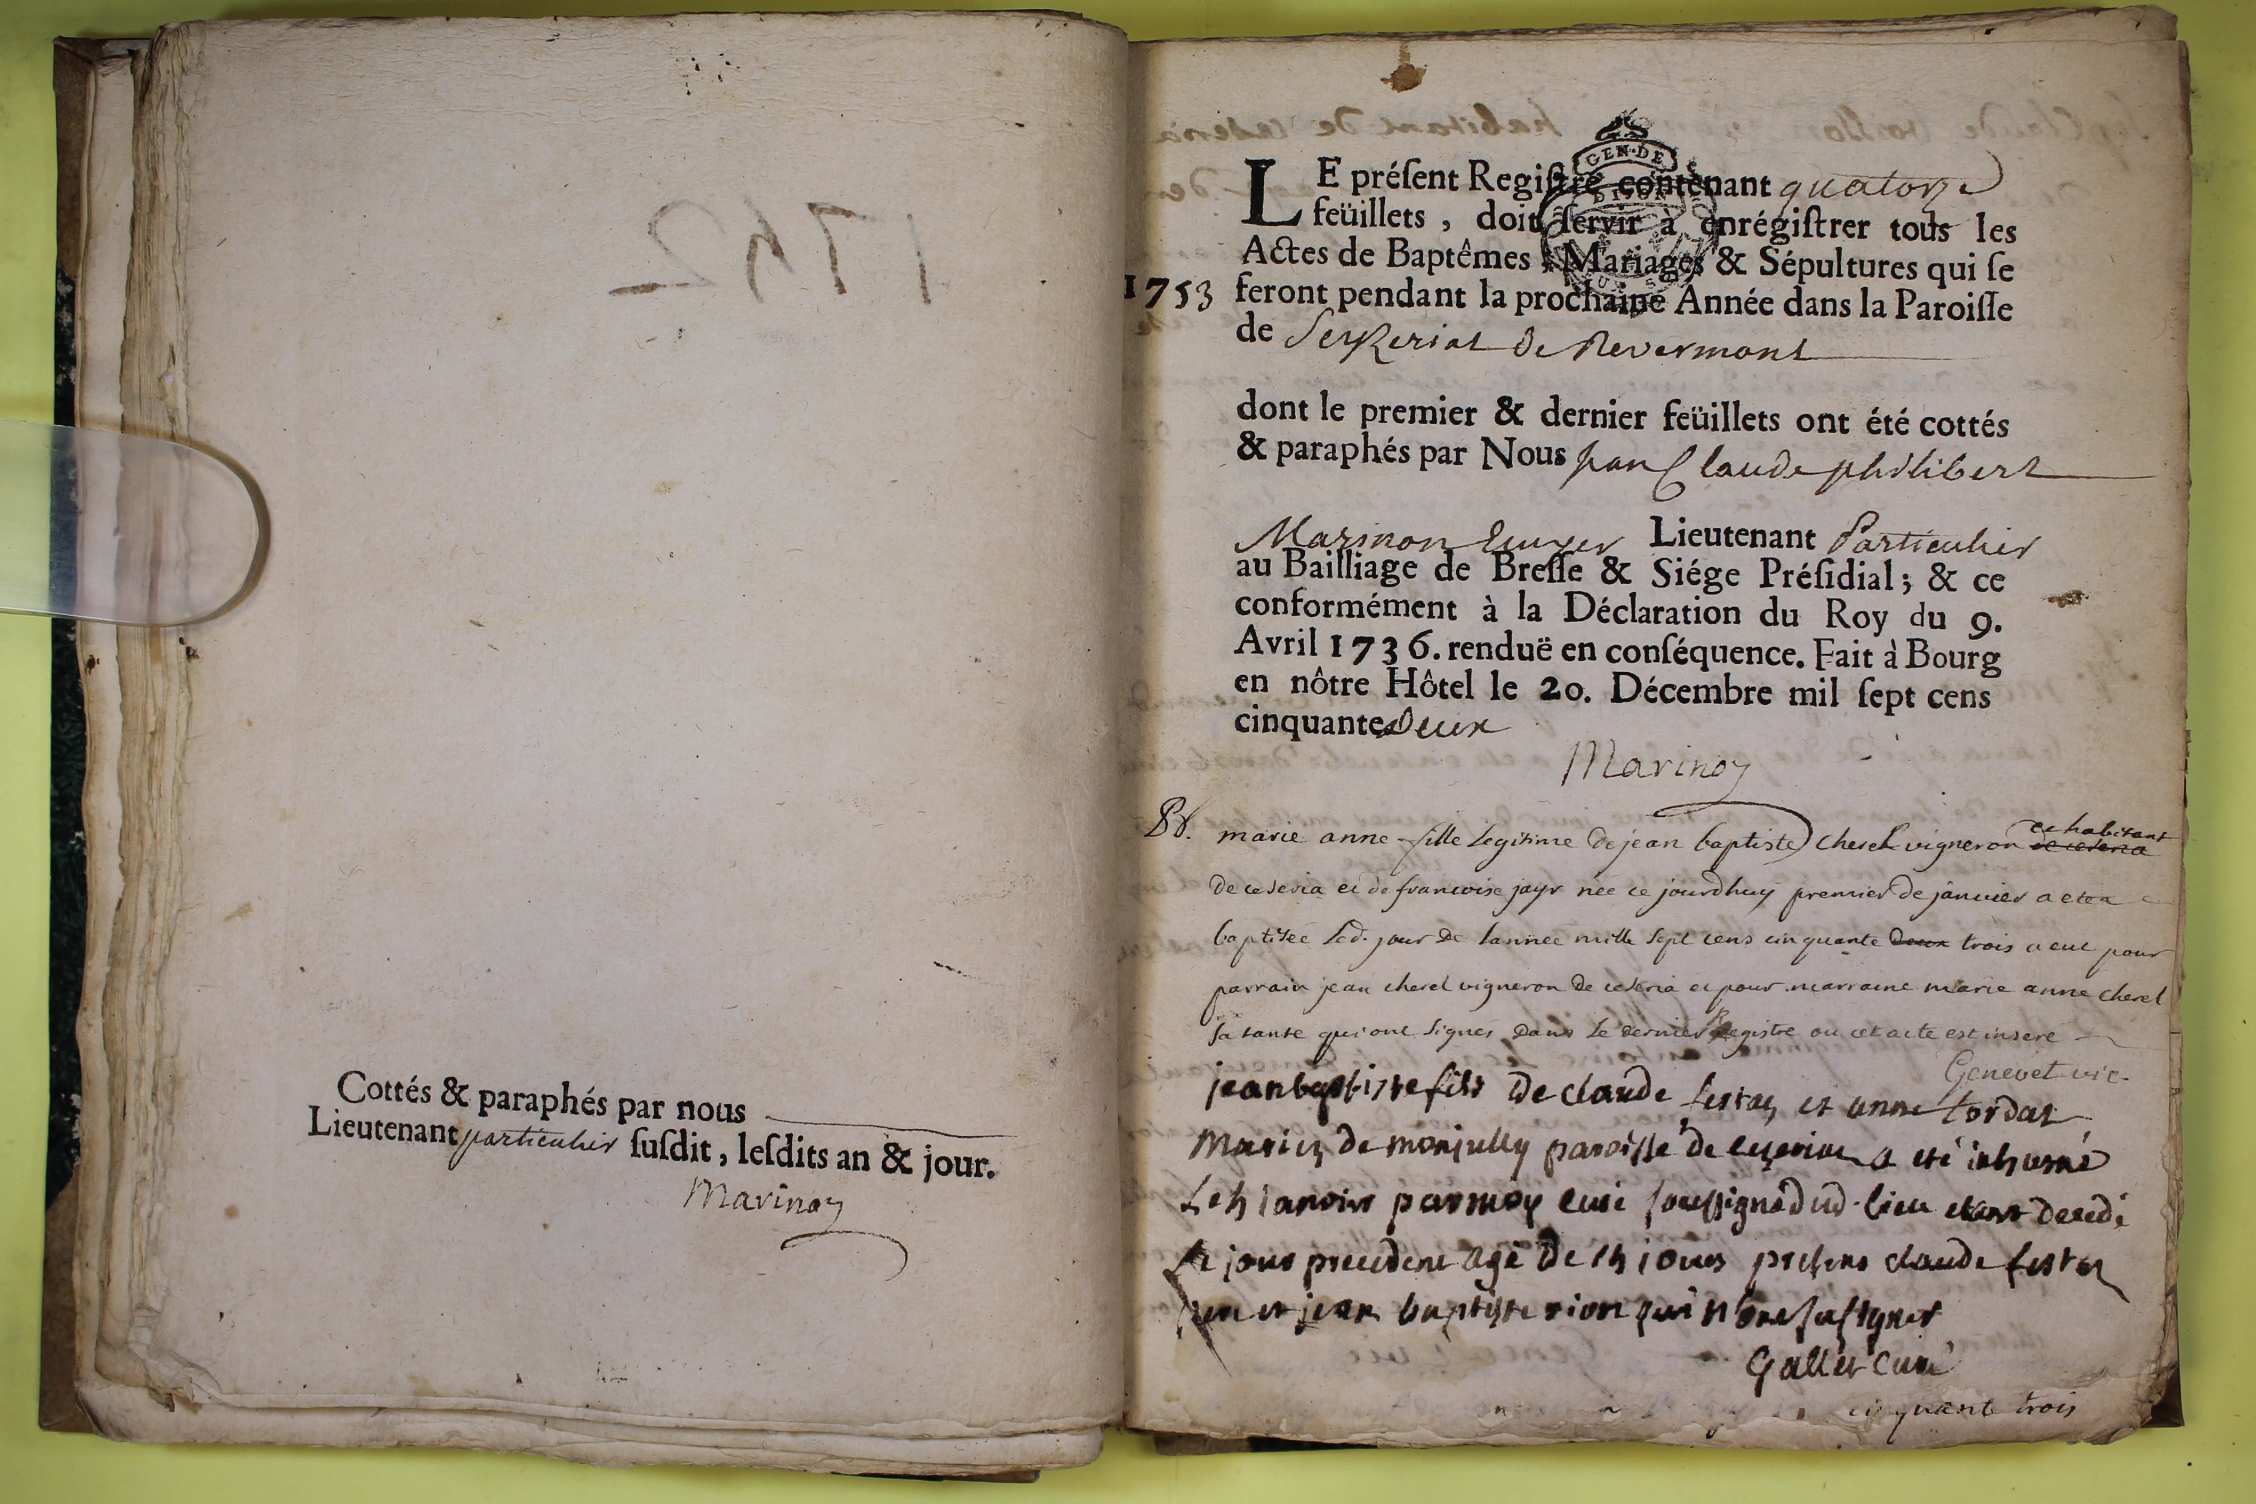 1752
Cottés & paraphés par nous
Lieutenant particulier ſuſdit, leſdits an & jour.
Marinon
GEN·DE
DIJON
LE préſent Regiſtre contenant quatorze
feüillets, doit ſervir à enrégiſtrer tous les
Actes de Baptêmes, Mariages & Sépultures qui ſe
1753 feront pendant la prochaine Année dans la Paroiſſe
de Seyzeriat de Revermont
dont le premier & dernier feüillets ont été cottés
& paraphés par Nous Claude philibert
Marinon Lieutenant Particulier
au Bailliage de Breſſe & Siége Préſidial; & ce
conformément à la Déclaration du Roy du 9.
Avril 1736. renduë en conſéquence. Fait à Bourg
en nôtre Hôtel le 20. Décembre mil ſept cens
cinquante Deux
Marinon
marie anne fille legitime de jean baptiste cherel vigneron et habitant
de ceseria et de francoise jayr née ce jourdhuy premier de janvier a ete
baptisée led. jour de lannee mille sept cens cinquante deux trois a eut pour
parrain jean cherel vigneron de ceseria et pour marraine marie anne cherel
sa tante qui ont signes dans le dernier Registre ou cet acte est inseré
Genevet vic.
jean baptiste fils de claude et anne tordat
Mariez de monjully paroisse de a eté inhumé
Le 4 janvier par moy curé soussigné dud. lieu etant decedé
le jour precedent agé de 14 jours presens claude
et jean baptiste rion qui n'ont su signer
Gallet Curé
cinquante trois